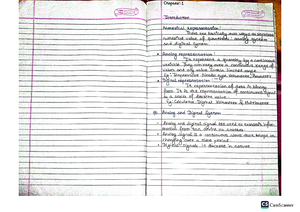 Chapter: 1
Introduction
Numerical representation:
There are basically two ways to represent
numerical value of quantities: analog system
and digital system
Analog representation:
In represent a quantity by a continuous
variable. They can vary over a continuous range of
values and any value within limited range.
Eg: Temperature, Needle type voltmeters, Ammeters
Digital representation:
In representation of data in binary
form. It is the representation of continuous signal
in a series of discrete value.
Eg: Calculator, Digital Voltmeters & Multimeters
Analog and Digital System
Analog and digital signal are used to transmit
from one device to another
Analog signal is a continuous wave that keeps on
changing over a time period
Digital signals is discrete in nature
CS CamScanner